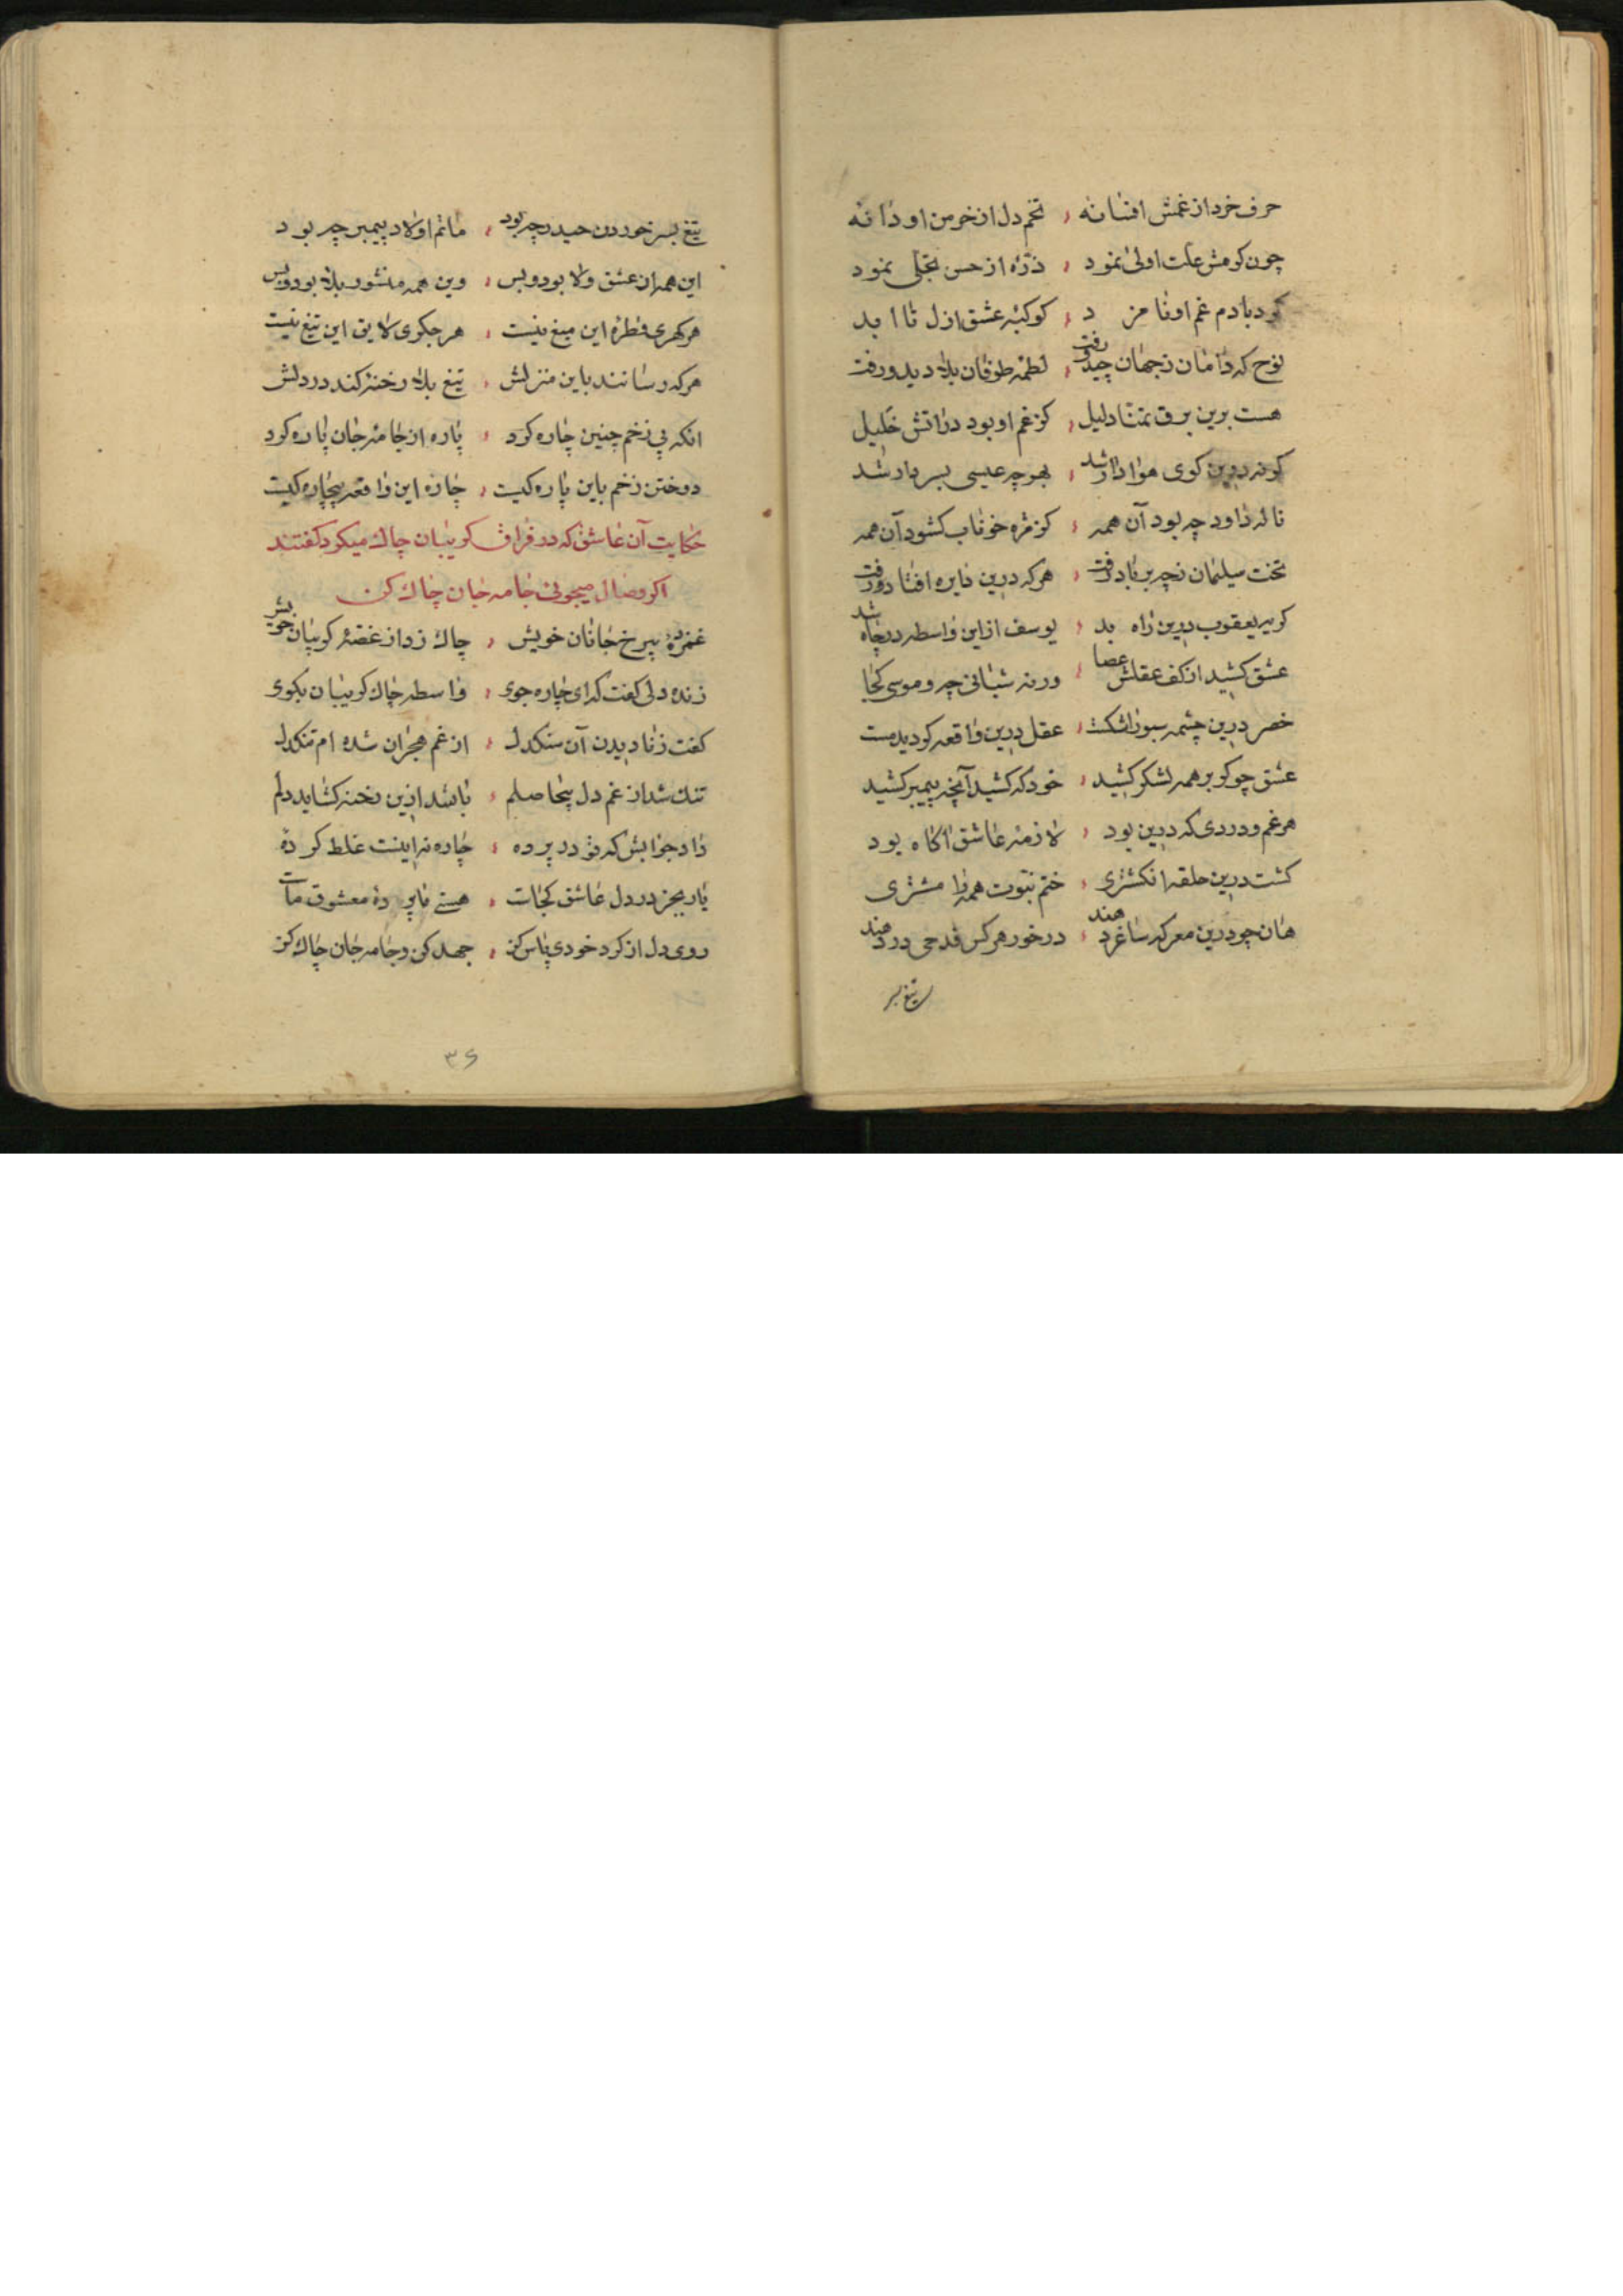 حرف خرد از غمش افسانه ، تخم دل از خرمن او دانه
چون کرمش علت اولی نمود ، ذره از حسن تجلی نمود
کرد بآدم غم او نامزد ، کوکبه عشق ازل تا ابد
نوح که دامان ز جهان چید و رفت ، لطمه طوفان بلا دید و رفت
هست برین برق تمنا دلیل ، کز غم او بود در آتش خلیل
کرنه درین کوی هوادار شد ، بهر چه عیسی بسر دار شد
ناله داود چه بود آن همه ، کز مژه خوناب کشود آن همه
تخت سلیمان نچه بر باد رفت ، هر که درین دایره افتاد و رفت
کریه یعقوب درین راه بد ، یوسف از این واسطه در چاه شد
عشق کشید از کف عقلش عصا ، ورنه شبانی چه و موسی کجا
خضر درین چشمه سبو را شکست ، عقل درین واقعه کردید مست
عشق چو کو بر همه لشکر کشید ، خود که کشید آنچه پیمبر کشید
هر غم و دردی که درین بود ، لازمه عاشق آکاه بود
کشت درین حلقه انکشتری ، ختم نبوت همه را مشتری
هان چو درین معرکه ساغر دهند ، در خور هر کس قدحی در دهند
تیغ بسر
تیغ بسر خوردن حیدر چه بود ، ماتم اولاد پیمبر چه بود
این همه از عشق ولا بود و بس ، وین همه منشور بلا بود و بس
هر کهری قطره این میغ نیست ، هر جکری لایق این تیغ نیست
هر که رسانند باین منزلش ، تیغ بلا رخنه کند در دلش
انکه پی زخم چنین چاره کرد ، پاره از جامه جان پاره کرد
دوختن زخم باین پاره کیست ، چاره این واقعه بیچاره کیست
حکایت آن عاشق که در فراق کریبان چاک میکرد کفتند
اکر وصال میجوئی جامه جان چاک کن
غمزده بیرخ جانان خویش ، چاک زد از غصه کریبان خویش
زنده دلی کفت که ای چاره جوی ، واسطه چاک کریبان بکوی
کفت ز نادیدن آن سنکدل ، از غم هجران شده ام تنکدل
تنک شد از غم دل بیحاصلم ، باشد ازین رخنه کشاید دلم
داد جوابش که تو در پرده ، چاره نه اینست غلط کرده
یار بجز در دل عاشق کجاست ، هستی ما پرده معشوق ماست
روی دل از کرد خودی پاس کن ، جهد کن و جامه جان چاک کن
۳۶